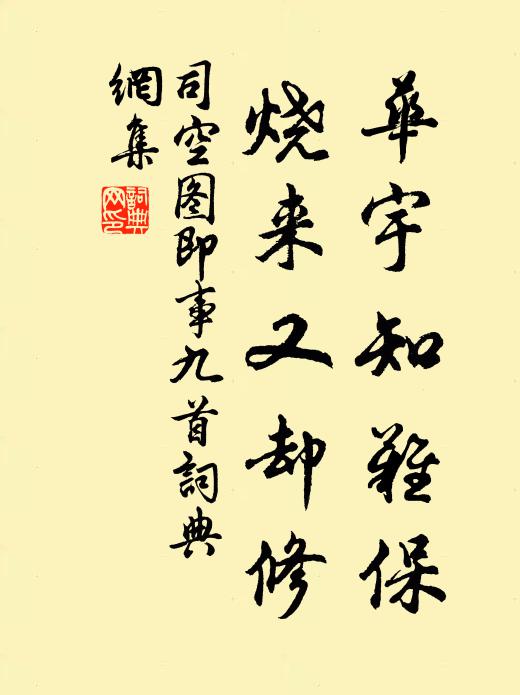 華宇知難保
烧来又却修
司空图即事九首詞典
網集
詞典
网印